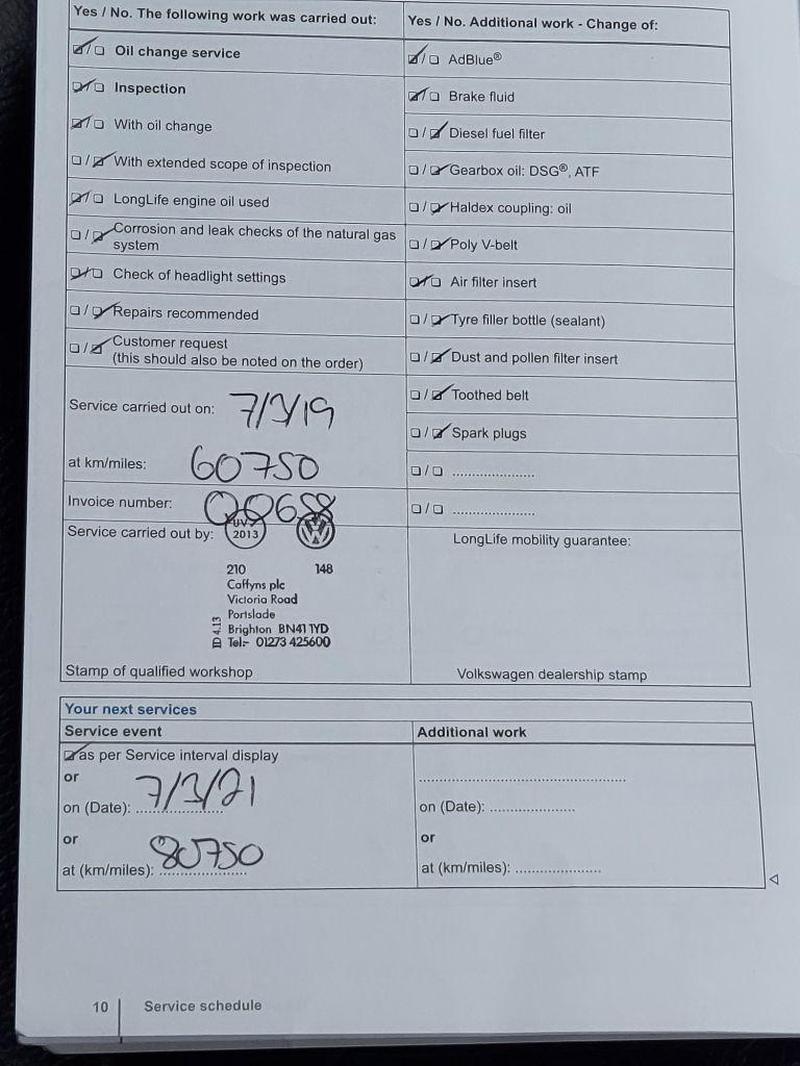 Yes / No. The following work was carried out:
☑/☐ Oil change service
☑/☐ Inspection
☑/☐ With oil change
☐/☑ With extended scope of inspection
☑/☐ LongLife engine oil used
☐/☑ Corrosion and leak checks of the natural gas
system
☑/☐ Check of headlight settings
☐/☑ Repairs recommended
☐/☑ Customer request
(this should also be noted on the order)
Service carried out on: 7/3/19
at km/miles: 60750
Invoice number: 00658
Service carried out by:
UV
2013
210 148
Caffyns plc
Victoria Road
Portslade
Brighton BN41 1YD
Tel:- 01273 425600
D 4.13
Stamp of qualified workshop
Yes / No. Additional work - Change of:
☑/☐ AdBlue®
☑/☐ Brake fluid
☐/☑ Diesel fuel filter
☐/☑ Gearbox oil: DSG®, ATF
☐/☑ Haldex coupling: oil
☐/☑ Poly V-belt
☑/☐ Air filter insert
☐/☑ Tyre filler bottle (sealant)
☐/☑ Dust and pollen filter insert
☐/☑ Toothed belt
☐/☑ Spark plugs
☐/☐ ......................
☐/☐ ......................
LongLife mobility guarantee:
Volkswagen dealership stamp
Your next services
Service event
☑ as per Service interval display
or
on (Date): 7/3/21
or
at (km/miles): 80750
Additional work
.......................................................
on (Date): ......................
or
at (km/miles): ......................
10 Service schedule